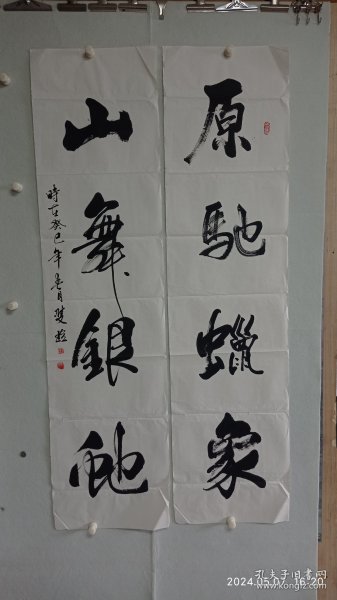 原馳蠟象
山舞銀蛇
時在癸巳年
2024.05.07 16:20
孔夫子旧書网
www.kongfz.com